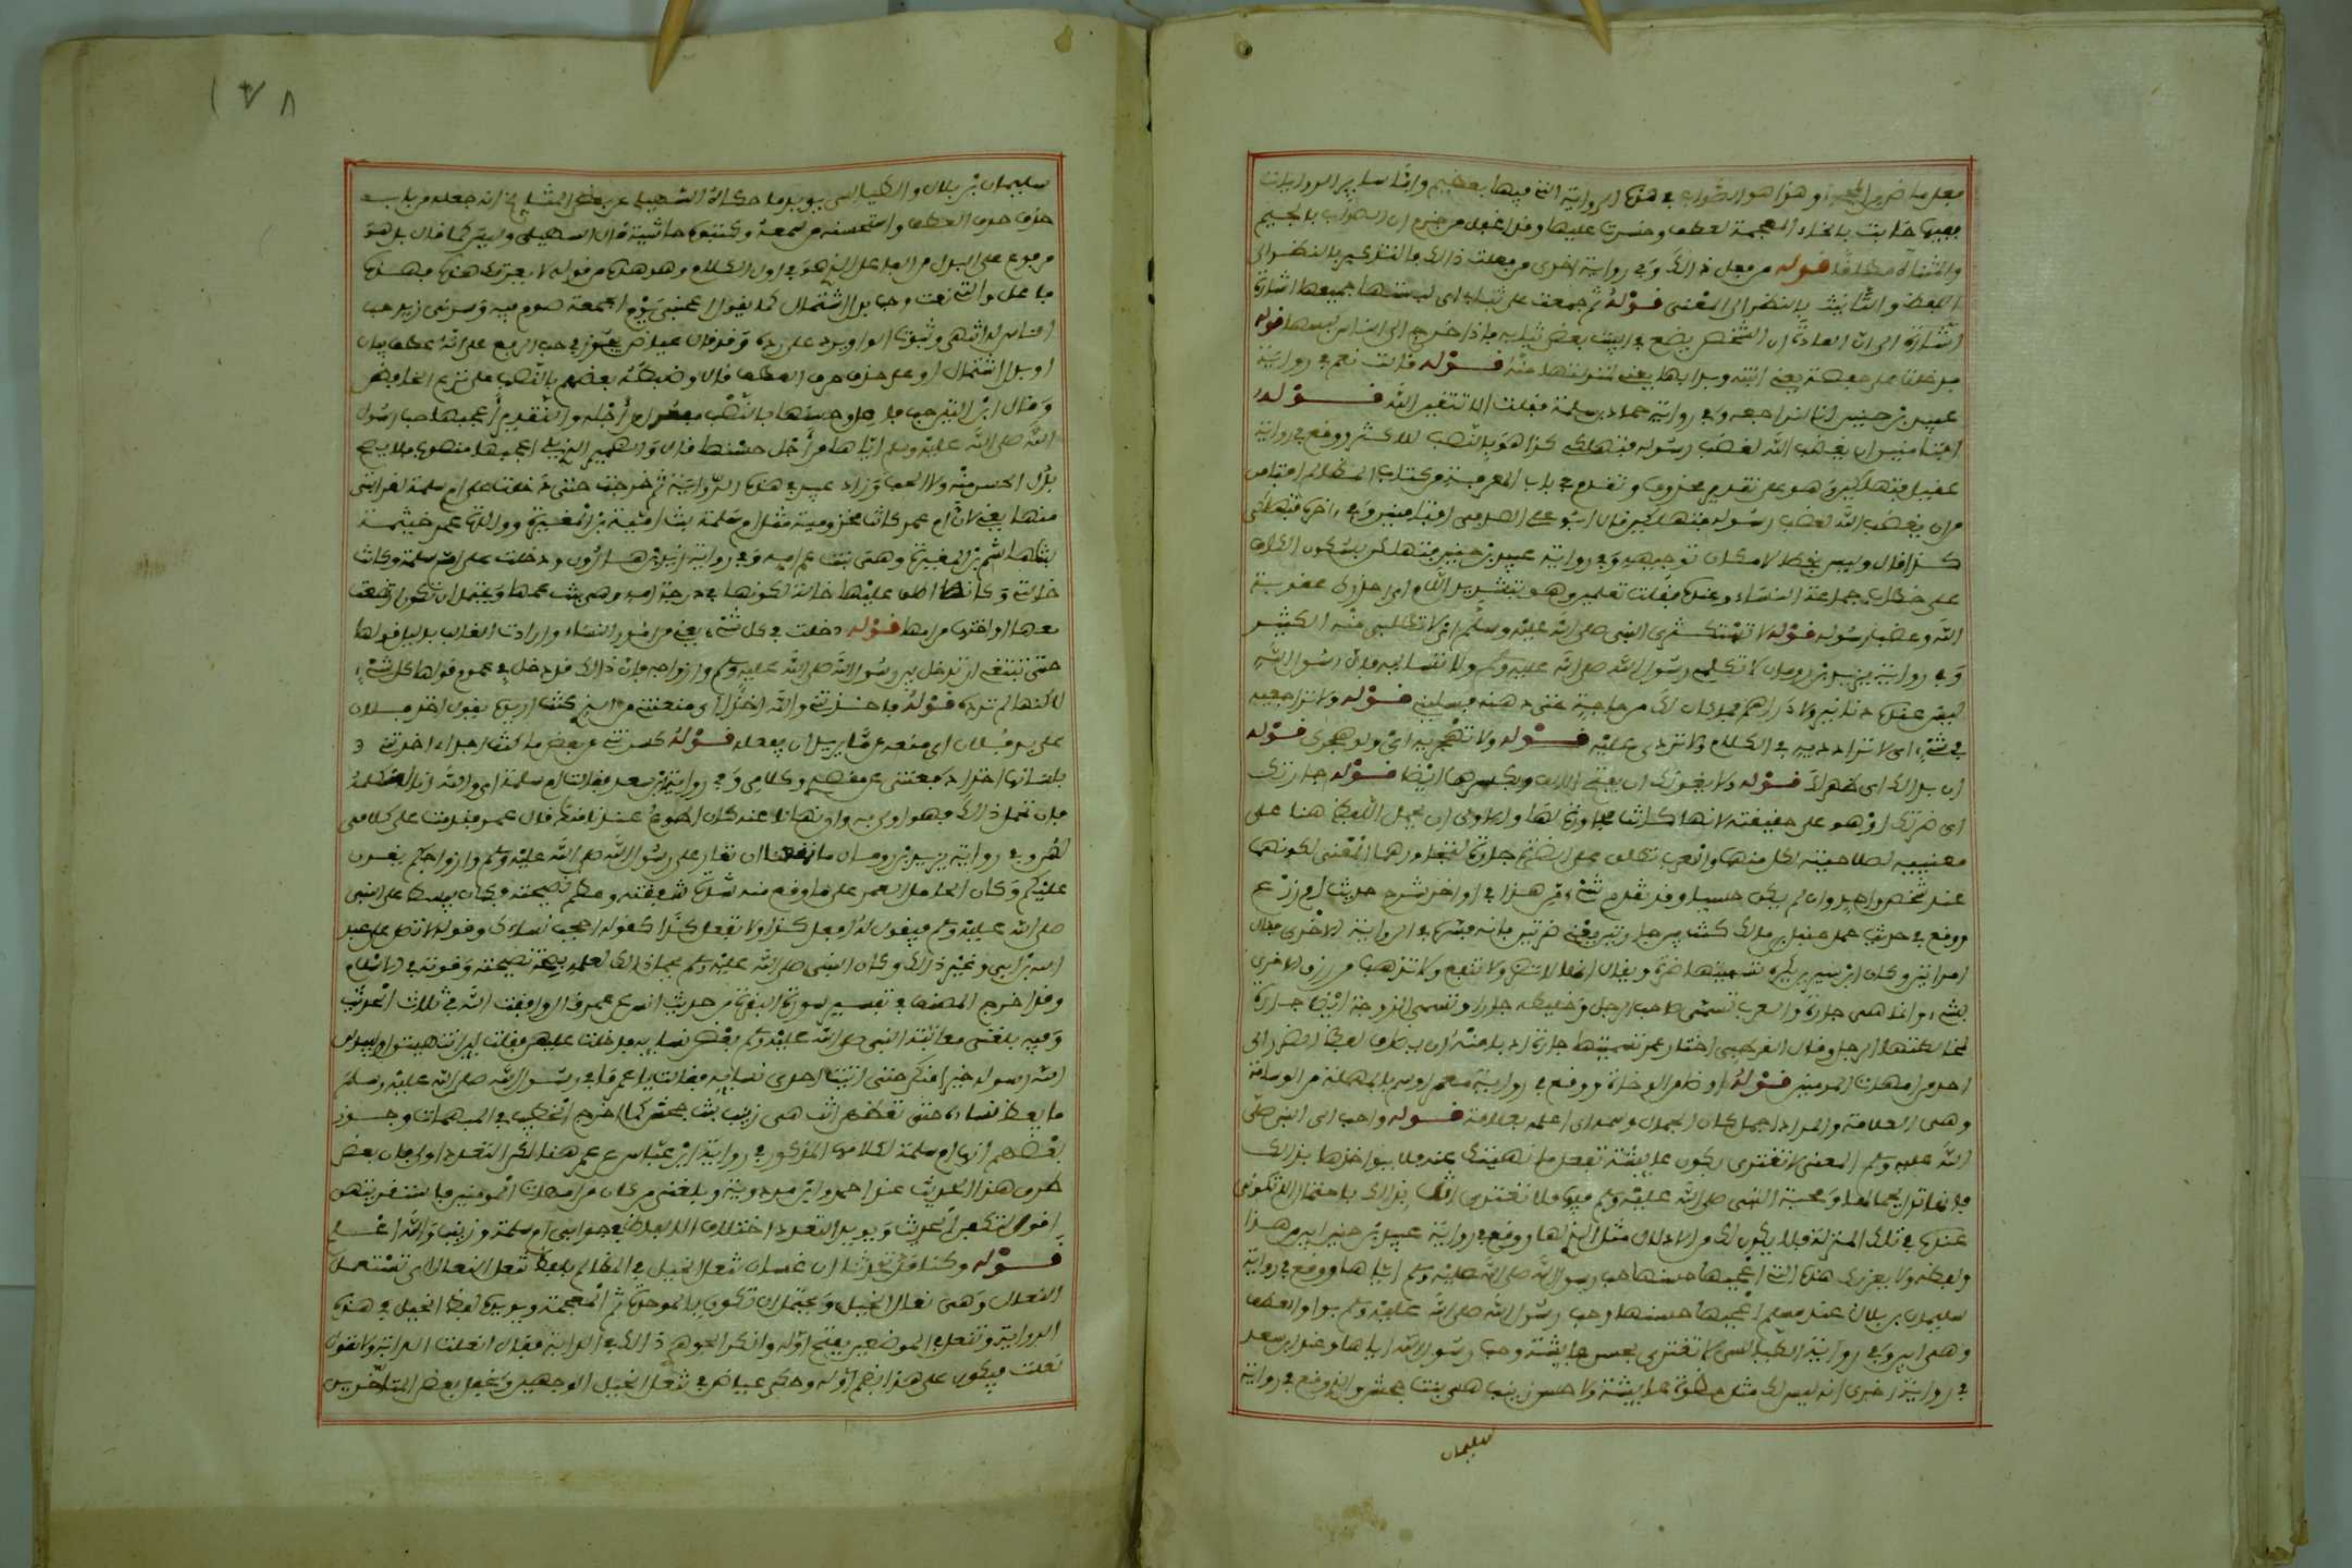 فعل ماض من المجيء وهذا هو الصواب في هذه الرواية التي فيها بعظيم واما ساير الروايات
ففيها خابت بالخاء المعجمة لعطف وخسرت عليها وقد اغفل من جزم ان الصواب بالجيم
والمثناة مطلقا قوله من فعل ذالك وفي رواية اخرى من فعلت ذالك فالتذكير بالنظر الى
اللفظ والتأنيث بالنظر الى المعنى قوله ثم جمعت علي ثيابي اي لبستها جميعها
اشارة الى ان العادة ان الشخص يضع في البيت بعض ثيابه فاذا خرج الى الناس لبسها قوله
فدخلت على حفصة يعني ابنته وبدا بها يعني لمنزلتها منه قوله قالت نعم في رواية
عبيد بن حنين انا لنراجعه وفي رواية حماد بن سلمة فقلت الا تتقين الله قوله
افتامنين ان يغضب الله لغضب رسوله فتهلكي كذا هو بالنصب للاكثر ووقع في رواية
عقيل فتهلكين وهو على تقدير محذوف وتقدم في باب المعرفة من كتاب المظالم افتامن
من ان يغضب الله لغضب رسوله فتهلكين قال ابو علي الصدفي افتامنين وفي اخره فتهلكي
كذا قال وليس بخطا لامكان توجيهه وفي رواية عبيد بن حنين فتهلكن بسكون الكاف
على خطاب جماعة النساء وعنده فقلت تعلمين وهو بتشديد اللام اني احذرك عقوبة
الله وغضب رسوله قوله لا تستكثري النبي صلى الله عليه وسلم اي لا تطلبي منه الكثير
وفي رواية يزيد بن رومان لا تكلمي رسول الله صلى الله عليه وسلم ولا تسأليه فان رسول الله
ليس عنده دنانير ولا دراهم فما كان لك من حاجة حتى دهنة فسليني قوله ولا تراجعيه
في شيء اي لا تراددیه في الكلام ولا تردي عليه قوله ولا تهجريه اي ولو هجرك قوله
ان بدا لك اي ظهر لك قوله ولا يغرنك ان بفتح الالف وبكسرها ايضا قوله جارتك
اي ضرتك او هو على حقيقته لانها كانت مجاورة لها والاولى ان يحمل اللفظ هنا على
معنييه لصلاحيته لكل منهما والعرب تطلق على الضرة جارة لتجاورهما المعنوي لكونهما
عند شخص واحد وان لم يكن حسيا وقد تقدم شيء من هذا في اواخر شرح حديث ام زرع
ووقع في حديث حمل بن مالك كنت بين جارتين يعني ضرتين فانه فسره في الرواية الاخرى فقال
امراتين وكان ابن سيرين يكره تسميتها ضرة ويقول انها لا تضر ولا تنفع ولا تذهب من رزق الاخرى
بشيء وانما هي جارة والعرب تسمي صاحب الرجل وخليطه جارا وتسمي الزوجة ايضا جارة
لمخالطتها الرجل وقال القرطبي اختار عمر تسميتها جارة ادبا منه ان يضاف لفظ الضرر الى
احد من امهات المومنين قوله اوضا من الوضاءة ووقع في رواية معمر اوسم بالمهملة من الوسامة
وهي العلامة والمراد اجمل كان الجمال وسمه اي اعلمه بعلامة قوله واحب الى النبي صلى
الله عليه وسلم المعنى لا تغتري بكون عايشة تفعل ما نهيتك عنه فلا يواخذها بذالك
فانها تدل بجمالها ومحبة النبي صلى الله عليه وسلم فيها فلا تغتري انت بذالك لاحتمال الا تكوني
عنده في تلك المنزلة فلا يكون لك من الادلال مثل الذي لها ووقع في رواية عبيد بن حنين ابين من هذا
ولفظه ولا يغرنك هذه التي اعجبها حسنها حب رسول الله صلى الله عليه وسلم اياها ووقع في رواية
سليمان بن بلال عند مسلم اعجبها حسنها وحب رسول الله صلى الله عليه وسلم بواو العطف
وهي ابين وفي رواية الطيالسي لا تغتري بحسن عايشة وحب رسول الله اياها وعند ابن سعد
في رواية اخرى انه ليس لك مثل حظوة عايشة ولا حسن زينب هي بنت جحش والذي وقع في رواية
سليمان
١٧٨
سليمان بن بلال والطيالسي يويد ما حكاه السهيلي عن بعض المشايخ انه جعله من باب
حذف حرف العطف واستحسنه من سمعه وكتبوه حاشية قال السهيلي وليس كما قال بل هو
مرفوع على البدل من الفاعل الذي هو في اول الكلام وهو هذه من قوله لا يغرنك هذه فهذه
فاعل والتي نعت وحب بدل اشتمال كما يقول اعجبني يوم الجمعة صوم فيه وسرني زيد حب
الناس له انتهى وثبوت الواو يرد على رده وقد قال عياض يجوز في حب الرفع على انه عطف بيان
او بدل اشتمال او على حذف حرف العطف قال وضبطه بعضهم بالنصب على نزع الخافض
وقال ابن التين حب فاعل وحسنها بالنصب مفعول من اجله والتقدير اعجبها حب رسول
الله صلى الله عليه وسلم اياها من اجل حسنها قال والضمير الذي يلي اعجبها منصوب فلا يصح
بدل الحسن منه ولا الحب وزاد عبيد في هذه الرواية ثم خرجت حتى دخلت على ام سلمة لقرابتي
منها يعني لان ام عمر كانت مخزومية مثل ام سلمة بنت ابي امية بن المغيرة ووالدة عمر حنتمة
بنت هاشم بن المغيرة وهي بنت عم امه وفي رواية يزيد بن رومان ودخلت على ام سلمة وكانت
خالتي وكانه اطلق عليها خالة لكونها في درجة امه وهي بنت عمها ويحتمل ان تكون ارتضعت
معها او اختها من امها قوله دخلت في كل شيء يعني من امور الناس وارادت الغالب بدليل قولها
حتى تبتغي ان تدخل بين رسول الله صلى الله عليه وسلم وازواجه فان ذالك قد دخل في عموم قولها كل شيء
لاكنها لم ترده قوله فاخذتني والله اخذا اي منعتني من الذي كنت اريده يقول اخذ فلان
على يد فلان اي منعه عما يريد ان يفعله قوله كسرتني عن بعض ما كنت اجد اي اخذتني
بلسانها اخذا دفعتني عن مقصدي وكلامي وفي رواية لابن سعد فقالت ام سلمة اي والله انا لنكلمه
فان تحمل ذالك فهو اولى به وان نهانا عنه كان اطوع عندنا منك قال عمر فندمت على كلامي
لهن وفي رواية يزيد بن رومان ما يمنعنا ان نغار على رسول الله صلى الله عليه وسلم وازواجكم يغرن
عليكم وكان الحامل لعمر على ما وقع منه شدة شفقته وعظم نصيحته فكان يبسط على النبي
صلى الله عليه وسلم فيقول له افعل كذا ولا تفعل كذا كقوله احجب نساءك وقوله لا تصل على عبد
الله بن ابي وغير ذالك وكان النبي صلى الله عليه وسلم يحتمل ذالك لعلمه بصحة نصيحته وقوته في الاسلام
وقد اخرج المصنف في تفسير سورة البقرة من حديث انس عن عمر قال وافقت الله في ثلاث الحديث
وفيه بلغني معاتبة النبي صلى الله عليه وسلم بعض نسائه فدخلت عليهن فقلت لئن انتهيتن او ليبدلن
الله رسوله خيرا منكن حتى اتيت احدى نسائه فقالت يا عمر ما في رسول الله صلى الله عليه وسلم
ما يعظ نساءه حتى تعظهن انت هي زينب بنت جحش كما اخرج الخطيب في المبهمات وجوز
بعضهم انها ام سلمة لكلامها المذكور في رواية ابن عباس عن عمر هنا لكن التعدد اولى فان بعض
طرق هذا الحديث عند احمد وابن مردويه وبلغني ما كان من امهات المومنين فاستقريتهن
اقول لتكفن الحديث ويويد التعدد اختلاف الالفاظ في جوابي ام سلمة وزينب والله اعلم
قوله وكنا قد تحدثنا ان غسان تنعل الخيل في المظالم بلفظ تنعل النعال اي تستعمل
النعال وهي نعال الخيل ويحتمل ان تكون بالموحدة ثم المعجمة ويويده لفظ الخيل في هذه
الرواية وتنعل في الموضعين بفتح اوله وانكر الجوهري ذالك في الدابة فقال انعلت الدابة ولا تقول
نعلت فيكون على هذا بضم اوله وحكى عياض في تنعل الخيل الوجهين وغفل بعض المتاخرين